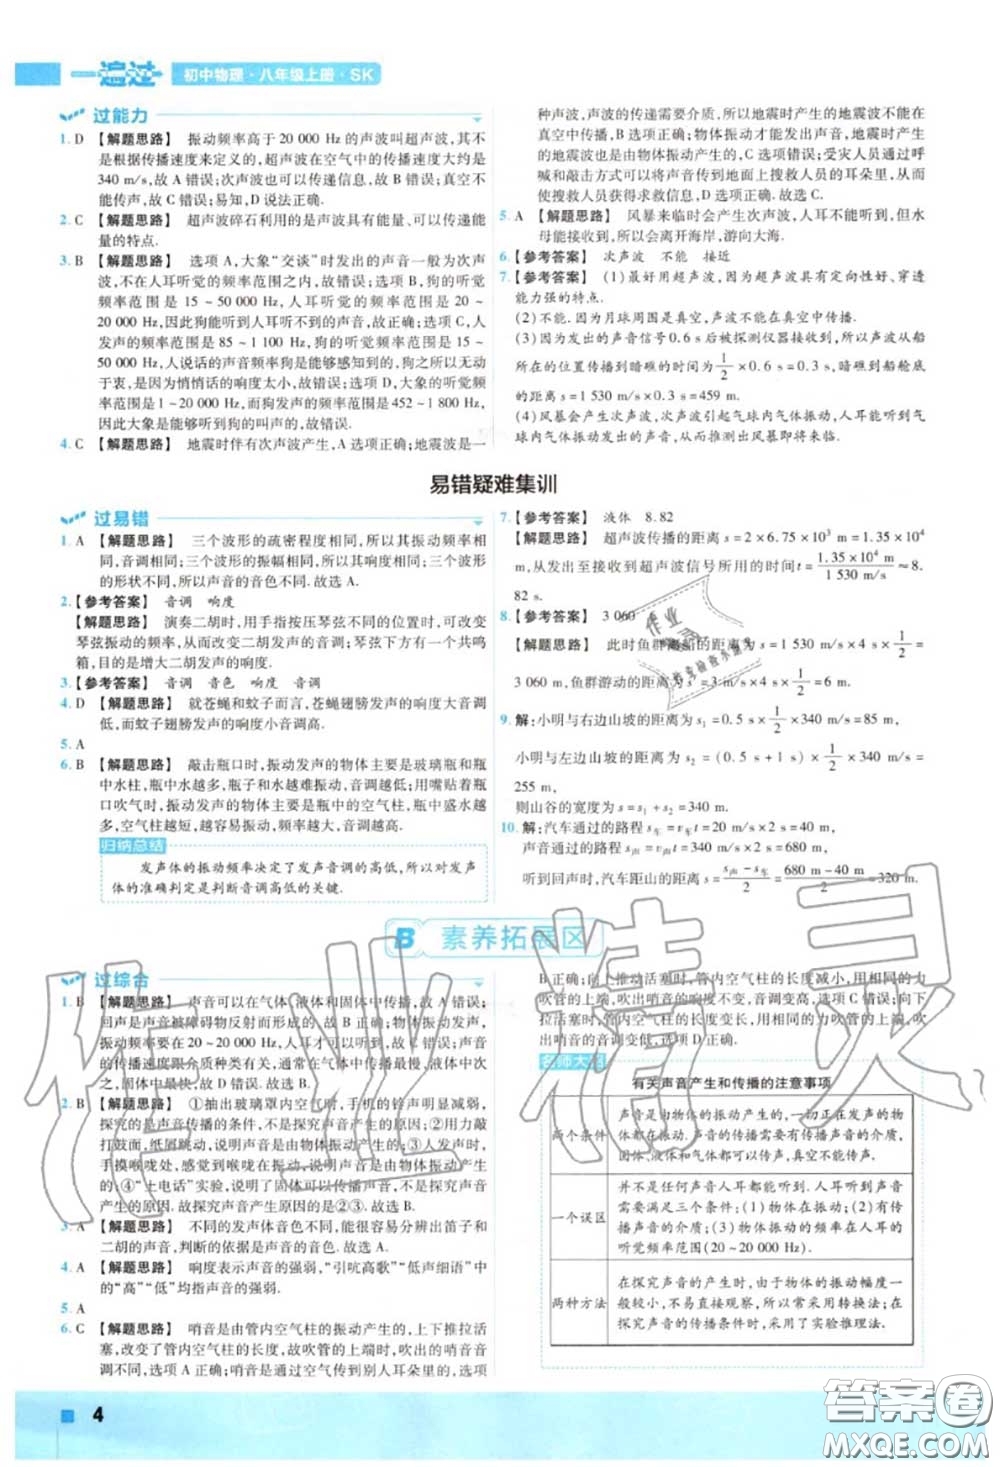 一遍过 初中物理·八年级上册·SK
过能力
1. D 【解题思路】 振动频率高于 20 000 Hz 的声波叫超声波,其不
是根据传播速度来定义的,超声波在空气中的传播速度大约是
340 m/s,故 A 错误;次声波也可以传递信息,故 B 错误;真空不
能传声,故 C 错误;易知,D 说法正确.
2. C 【解题思路】 超声波碎石利用的是声波具有能量、可以传递能
量的特点.
3. B 【解题思路】 选项 A,大象“交谈”时发出的声音一般为次声
波,不在人耳听觉的频率范围之内,故错误;选项 B,狗的听觉
频率范围是 15 ~ 50 000 Hz,人耳听觉的频率范围是 20 ~
20 000 Hz,因此狗能听到人耳听不到的声音,故正确;选项 C,人
发声的频率范围是 85 ~ 1 100 Hz,狗的听觉频率范围是 15 ~
50 000 Hz,人说话的声音频率狗是能够感知到的,狗之所以无动
于衷,是因为悄悄话的响度太小,故错误;选项 D,大象的听觉频
率范围是 1 ~ 20 000 Hz,而狗发声的频率范围是 452 ~ 1 800 Hz,
因此大象是能够听到狗的叫声的,故错误.
4. C 【解题思路】 地震时伴有次声波产生,A 选项正确;地震波是一
种声波,声波的传递需要介质,所以地震时产生的地震波不能在
真空中传播,B 选项正确;物体振动才能发出声音,地震时产生的
地震波也是由物体振动产生的,C 选项错误;受灾人员通过呼
喊和敲击方式可以将声音传到地面上搜救人员的耳朵里,从而
使搜救人员获得求救信息,D 选项正确.故选 C.
5. A 【解题思路】 风暴来临时会产生次声波,人耳不能听到,但水
母能接收到,所以会离开海岸,游向大海.
6. 【参考答案】 次声波 不能 接近
7. 【参考答案】 (1)最好用超声波,因为超声波具有定向性好、穿透
能力强的特点.
(2)不能.因为月球周围是真空,声波不能在真空中传播.
(3)因为发出的声音信号 0.6 s 后被探测仪器接收到,所以声从船
所在的位置传播到暗礁的时间为 1/2 × 0.6 s = 0.3 s,暗礁到船舱底
的距离为 1 530 m/s × 0.3 s = 459 m.
(4)风暴会产生次声波,次声波引起气球内气体振动,人耳能听到气
球内气体振动发出的声音,从而推测出风暴即将来临.
易错疑难集训
过易错
1. A 【解题思路】 三个波形的疏密程度相同,所以其振动频率相
同,音调相同;三个波形的振幅相同,所以其响度相同;三个波形
的形状不同,所以声音的音色不同.故选 A.
2. 【参考答案】 音调 响度
【解题思路】 演奏二胡时,用手指按压琴弦不同的位置时,可改变
琴弦振动的频率,从而改变二胡发声的音调;琴弦下方有一个共鸣
箱,目的是增大二胡发声的响度.
3. 【参考答案】 音调 音色 响度 音调
4. D 【解题思路】 就苍蝇和蚊子而言,苍蝇翅膀发声的响度大音调
低,而蚊子翅膀发声的响度小音调高.
5. A
6. B 【解题思路】 敲击瓶口时,振动发声的物体主要是玻璃瓶和瓶
中水柱,瓶中水越多,瓶子和水越难振动,音调越低;用嘴贴着瓶
口吹气时,振动发声的物体主要是瓶中的空气柱,瓶中水盛水越
多,空气柱越短,越容易振动,频率越大,音调越高.
归纳总结
发声体的振动频率决定了发声音调的高低,所以对发声
体的准确判定是判断音调高低的关键.
7. 【参考答案】 液体 8.82
【解题思路】 超声波传播的距离 s = 2 × 6.75 × 10³ m = 1.35 × 10⁴
m,从发出至接收到超声波信号所用的时间 t = 1.35 × 10⁴ m / 1 530 m/s ≈ 8.
82 s.
8. 【参考答案】 3 060
【解题思路】 此时鱼群离船的距离为 s = 1 530 m/s × 4 s × 1/2 =
3 060 m,鱼群游动的距离为
9. 解:小明与右边山坡的距离为 s₁ = 0.5 s × 1/2 × 340 m/s = 85 m,
小明与左边山坡的距离为 s₂ = (0.5 s + 1 s) × 1/2 × 340 m/s =
255 m,
则山谷的宽度为 s = s₁ + s₂ = 340 m.
10. 解:汽车通过的路程 s车 = v车t = 20 m/s × 2 s = 40 m,
声音通过的路程 s声 = v声t = 340 m/s × 2 s = 680 m,
听到回声时,汽车距山的距离 s = (s声 − s车)/2 = (680 m − 40 m)/2 = 320 m.
B 素养拓展区
过综合
1. B 【解题思路】 声音可以在气体、液体和固体中传播,故 A 错误;
回声是声音被障碍物反射而形成的,故 B 正确;物体振动发声,
振动频率要在 20 ~ 20 000 Hz 内,人耳才能听到,故 C 错误;声音
的传播速度跟介质种类有关,通常在气体中传播最慢,液体中次
之,固体中最快,故 D 错误.故选 B.
2. B 【解题思路】 ①抽出玻璃罩内空气时,手机的铃声明显减弱,
探究的是声音传播的条件,不是探究声音产生的原因;②用力敲
打鼓面,纸屑跳动,说明声音是由物体振动产生的;③人发声时,
手摸喉咙处,感觉到喉咙在振动,说明声音是由物体振动产生
的;④“土电话”实验,说明固体可以传声,不是探究声音产生
的原因.故探究声音产生原因的是②③.故选 B.
3. A 【解题思路】 不同的发声体音色不同,很容易分辨出笛子和
二胡的声音,判断的依据是声音的音色.故选 A.
4. A 【解题思路】 响度表示声音的强弱,“引吭高歌”“低声细语”中
的“高”“低”均指声音的强弱.
5. A
6. C 【解题思路】 哨音是由管内空气柱的振动产生的,上下推拉活
塞,改变了管内空气柱的长度,故吹哨子时,能听到哨音的音
调不同,选项 A 正确;哨音是通过空气传到别人耳朵里的,选项
B 正确;向上推动活塞时,管内空气柱的长度减小,用相同的力
吹管的上端,吹出哨音的音调变高,选项 C 错误;向下
拉活塞时,管内空气柱的长度变长,用相同的力吹管的上端,吹
出哨音的音调变低,选项 D 正确.
有关声音产生和传播的注意事项
两个条件 声音是由物体的振动产生的,一切正在发声的物
体都在振动.声音的传播需要有传播声音的介质,
固体、液体和气体都可以传声,真空不能传声.
一个误区 并不是任何声音人耳都能听到.人耳听到声音
需要满足三个条件:(1)物体在振动;(2)有
传播声音的介质;(3)物体振动的频率在人耳的
听觉频率范围(20 ~ 20 000 Hz).
两种方法 在探究声音的产生时,由于物体的振动幅度一
般较小,不易直接观察,所以常采用转换法;在
探究声音的传播条件时,采用了实验推理法.
4
作业精灵
答案卷
MXQE.COM